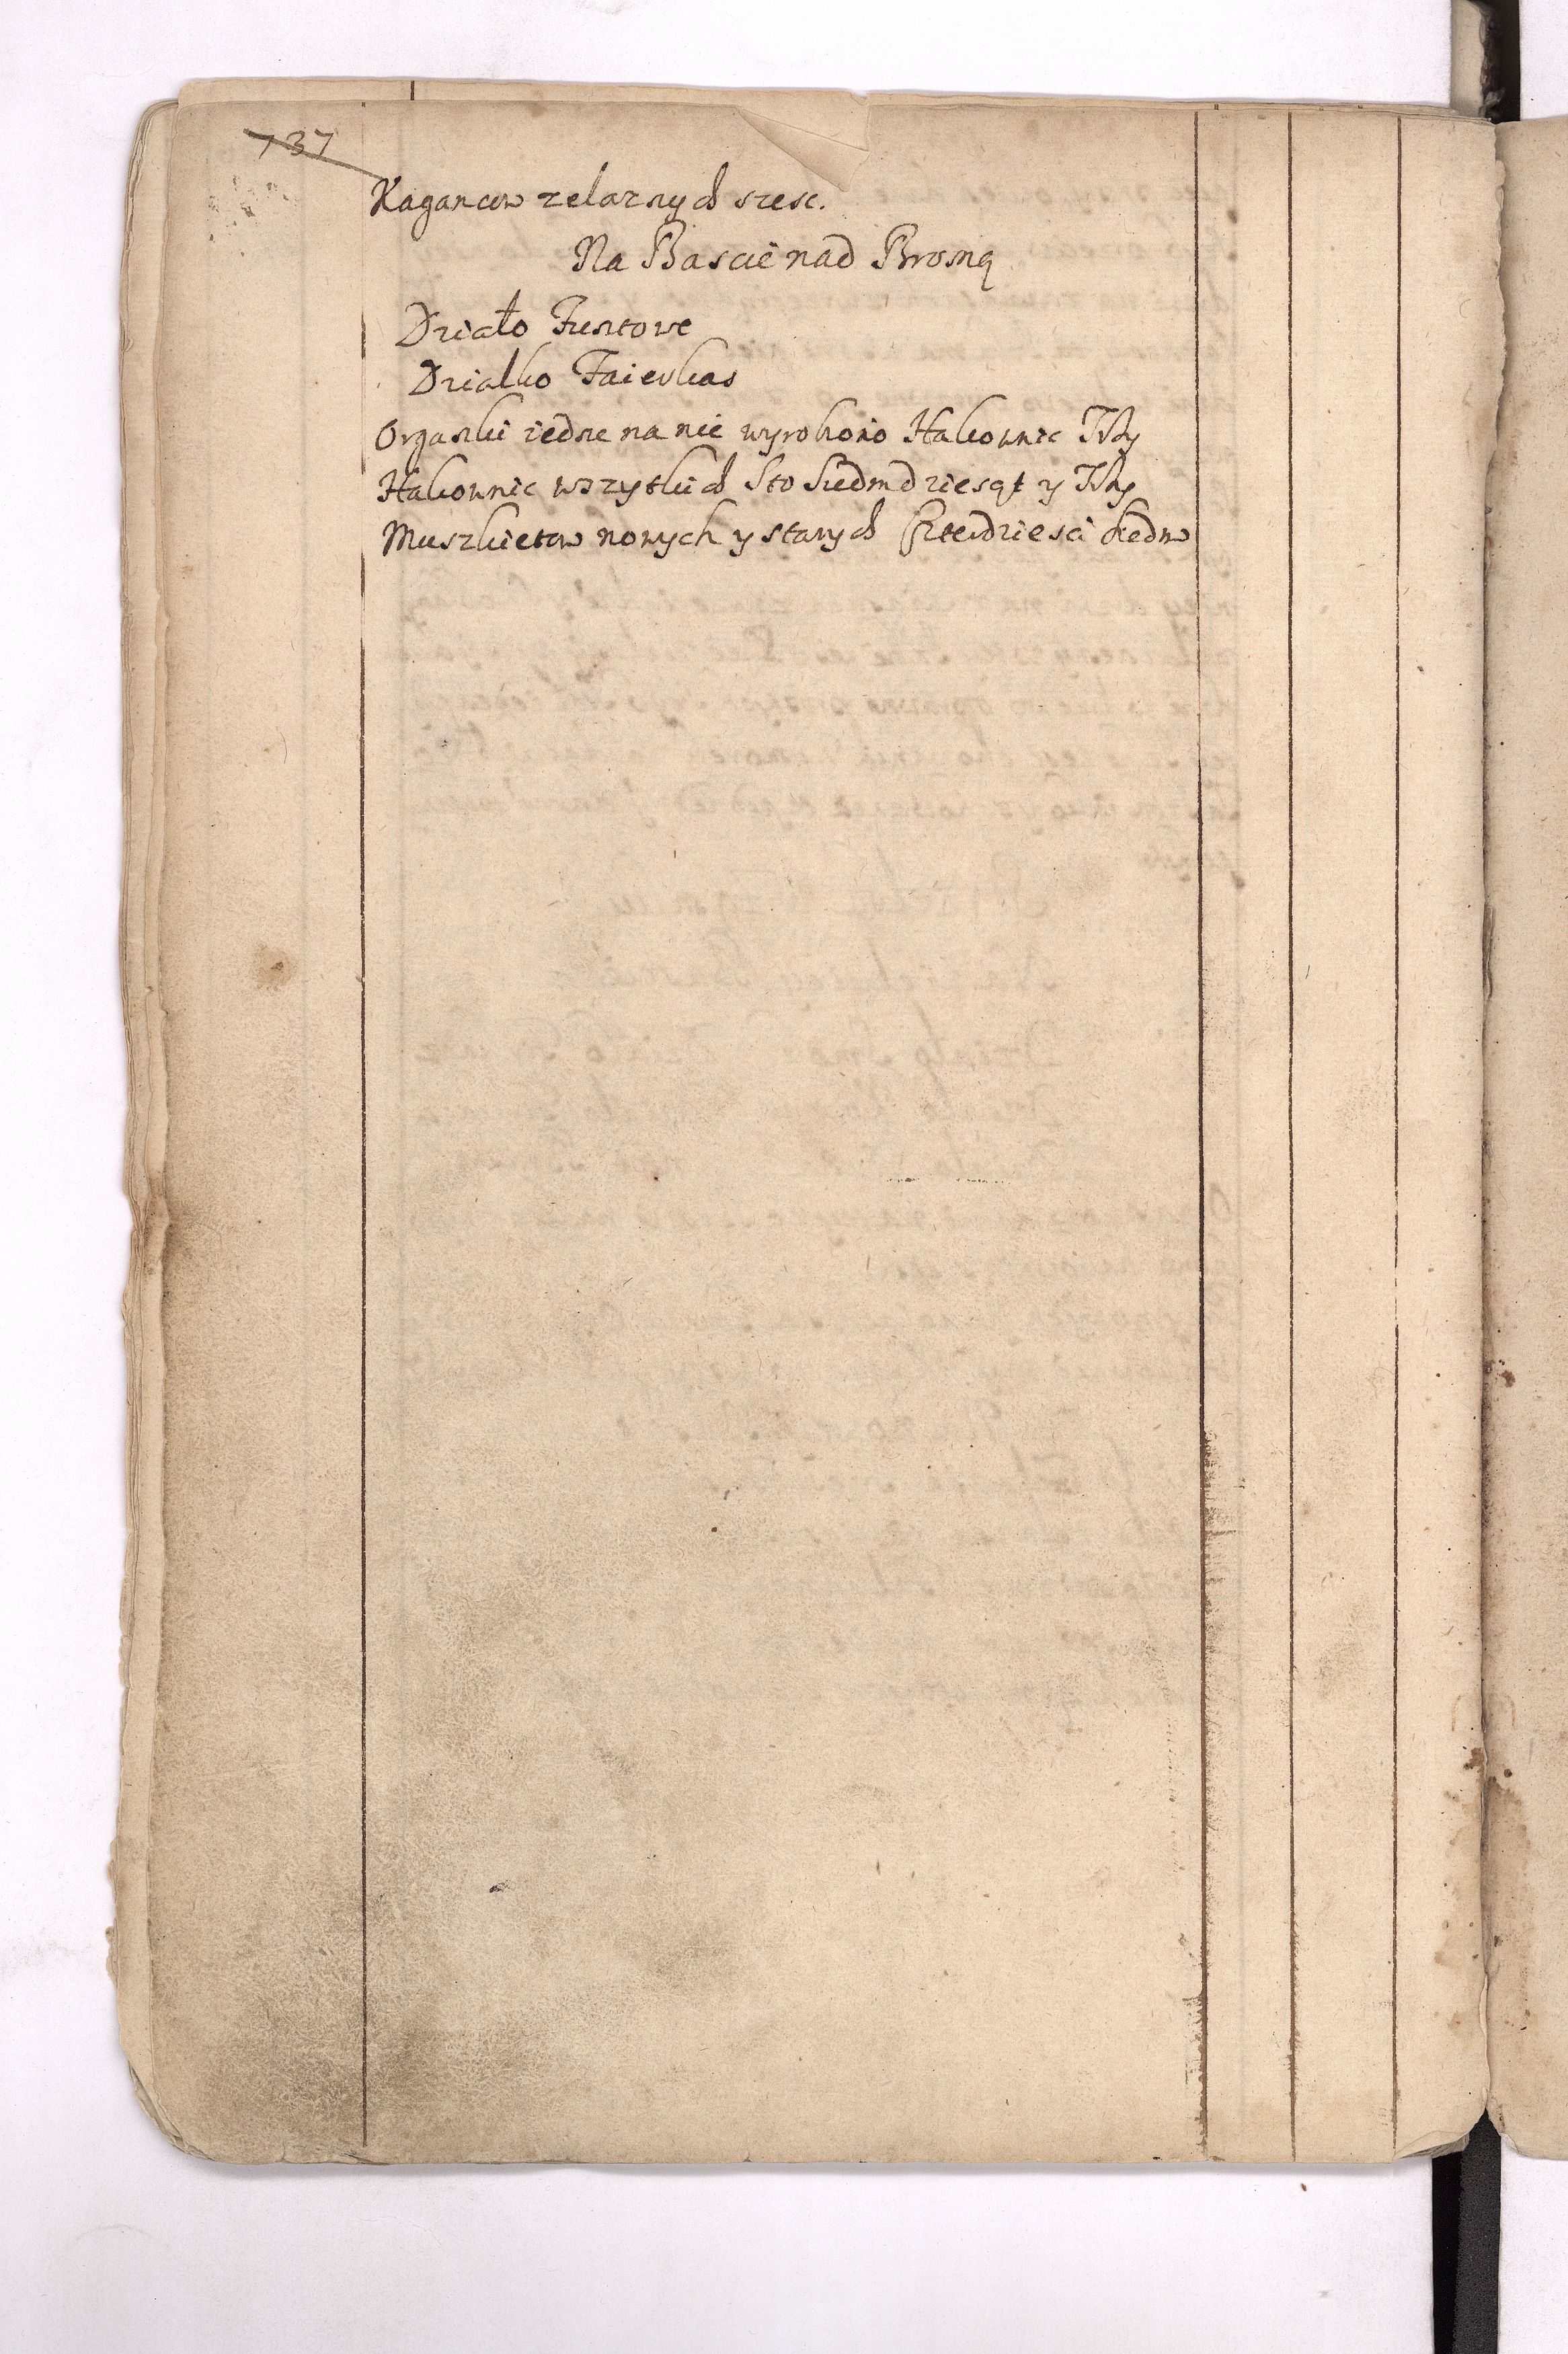 737
Kagancow zelaznych szesc.
Na Bascie nad Broną
Działo Funtowe
Dzialko
Organki iedne na nie wyrobiono Hakownic Trzy
Hakownic wszytkich Sto Siedmdziesąt y Trzy
Muszkietow nowych y starych Czterdziesci Siedm